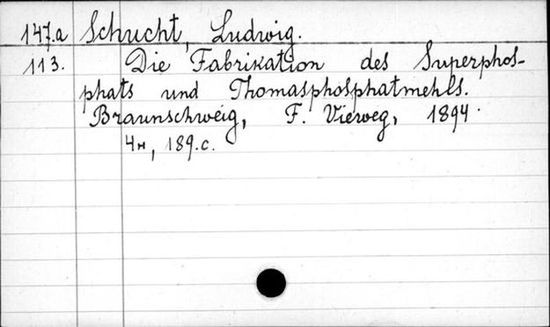 147.a Schucht, Ludwig.
113. Die Fabrikation des Superphos-
phats und Thomasphosphatmehls.
Braunschweig, F. Vieweg, 1894.
4H, 189.c.